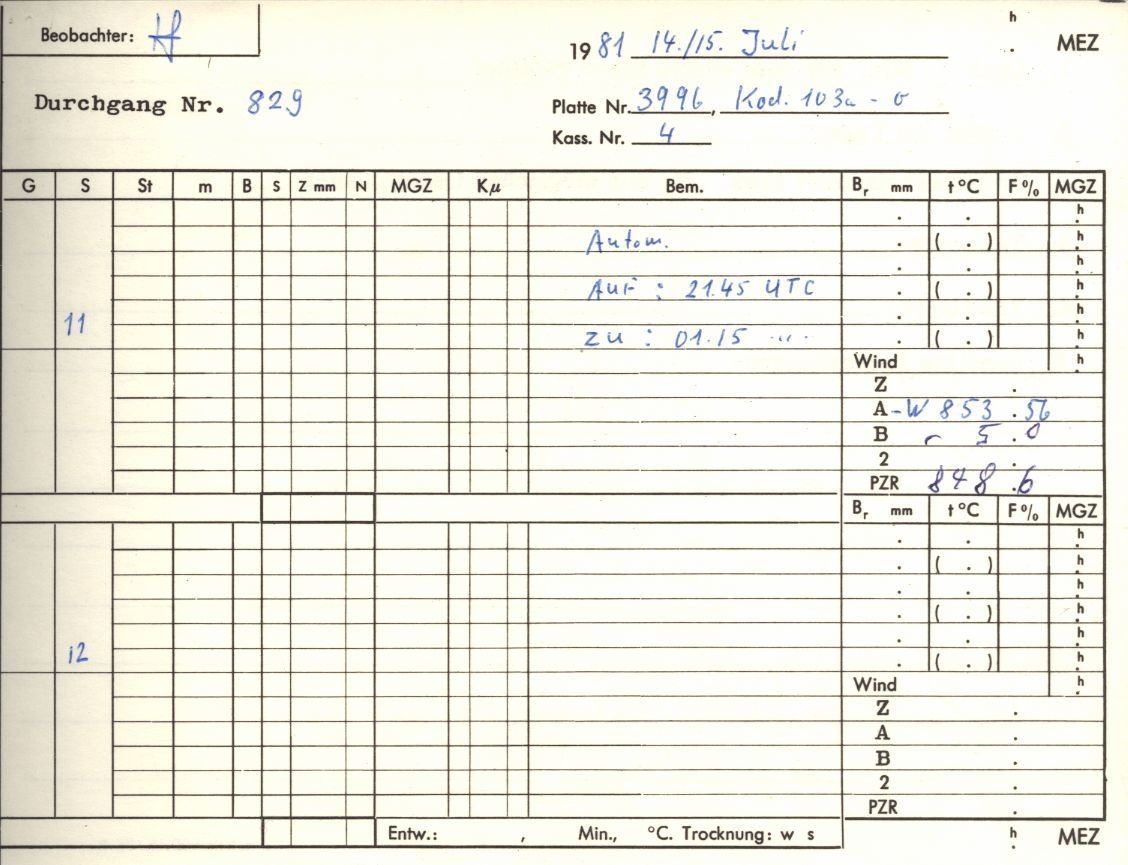 Beobachter: H
19 81 14./15. Juli
h . MEZ
Durchgang Nr. 829
Platte Nr. 3996, Kod. 103a - O
Kass. Nr. 4
G S St m B S Z mm N MGZ Kμ Bem. Br mm t °C F % MGZ
. . h
Autom. . ( . ) h
. . h
Auf : 21.45 UTC . ( . ) h
11 . . h
zu : 01.15 " . ( . ) h
Wind h
Z .
A - W 853 . 56
B - 5 . 0
2 .
PZR 848 . 6
Br mm t °C F % MGZ
. . h
. ( . ) h
. . h
. ( . ) h
. . h
12 . ( . ) h
Wind h
Z .
A .
B .
2 .
PZR .
Entw.: , Min., °C. Trocknung: w s h . MEZ